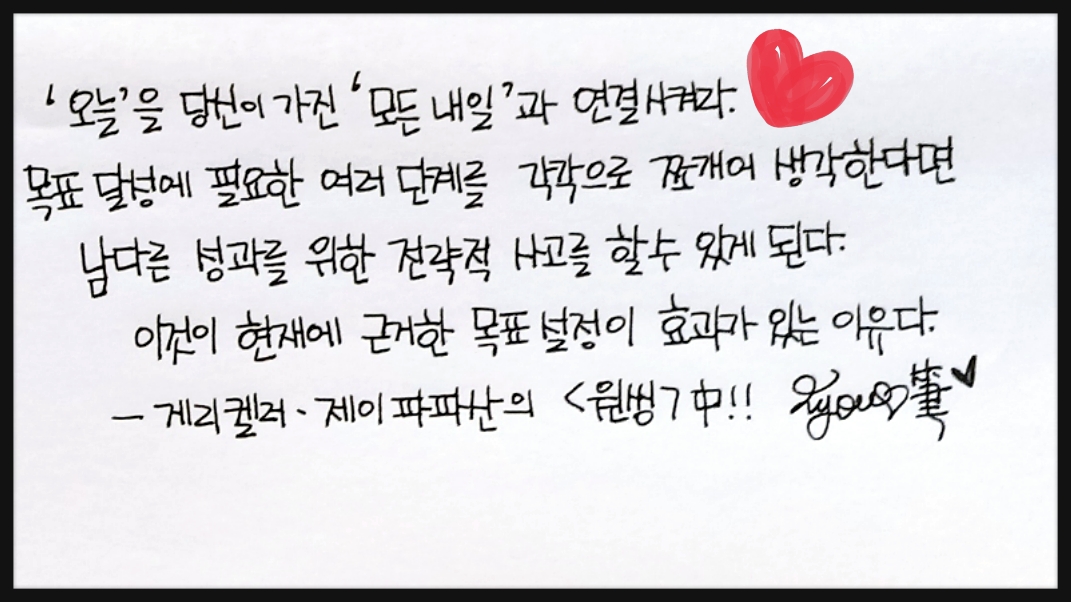 ‘오늘’을 당신이 가진 ‘모든 내일’과 연결시켜라.
목표 달성에 필요한 여러 단계를 각각으로 쪼개어 생각한다면
남다른 성과를 위한 전략적 사고를 할 수 있게 된다.
이것이 현재에 근거한 목표 설정이 효과가 있는 이유다.
- 게리켈러·제이파파산의 <원씽> 中!! 筆